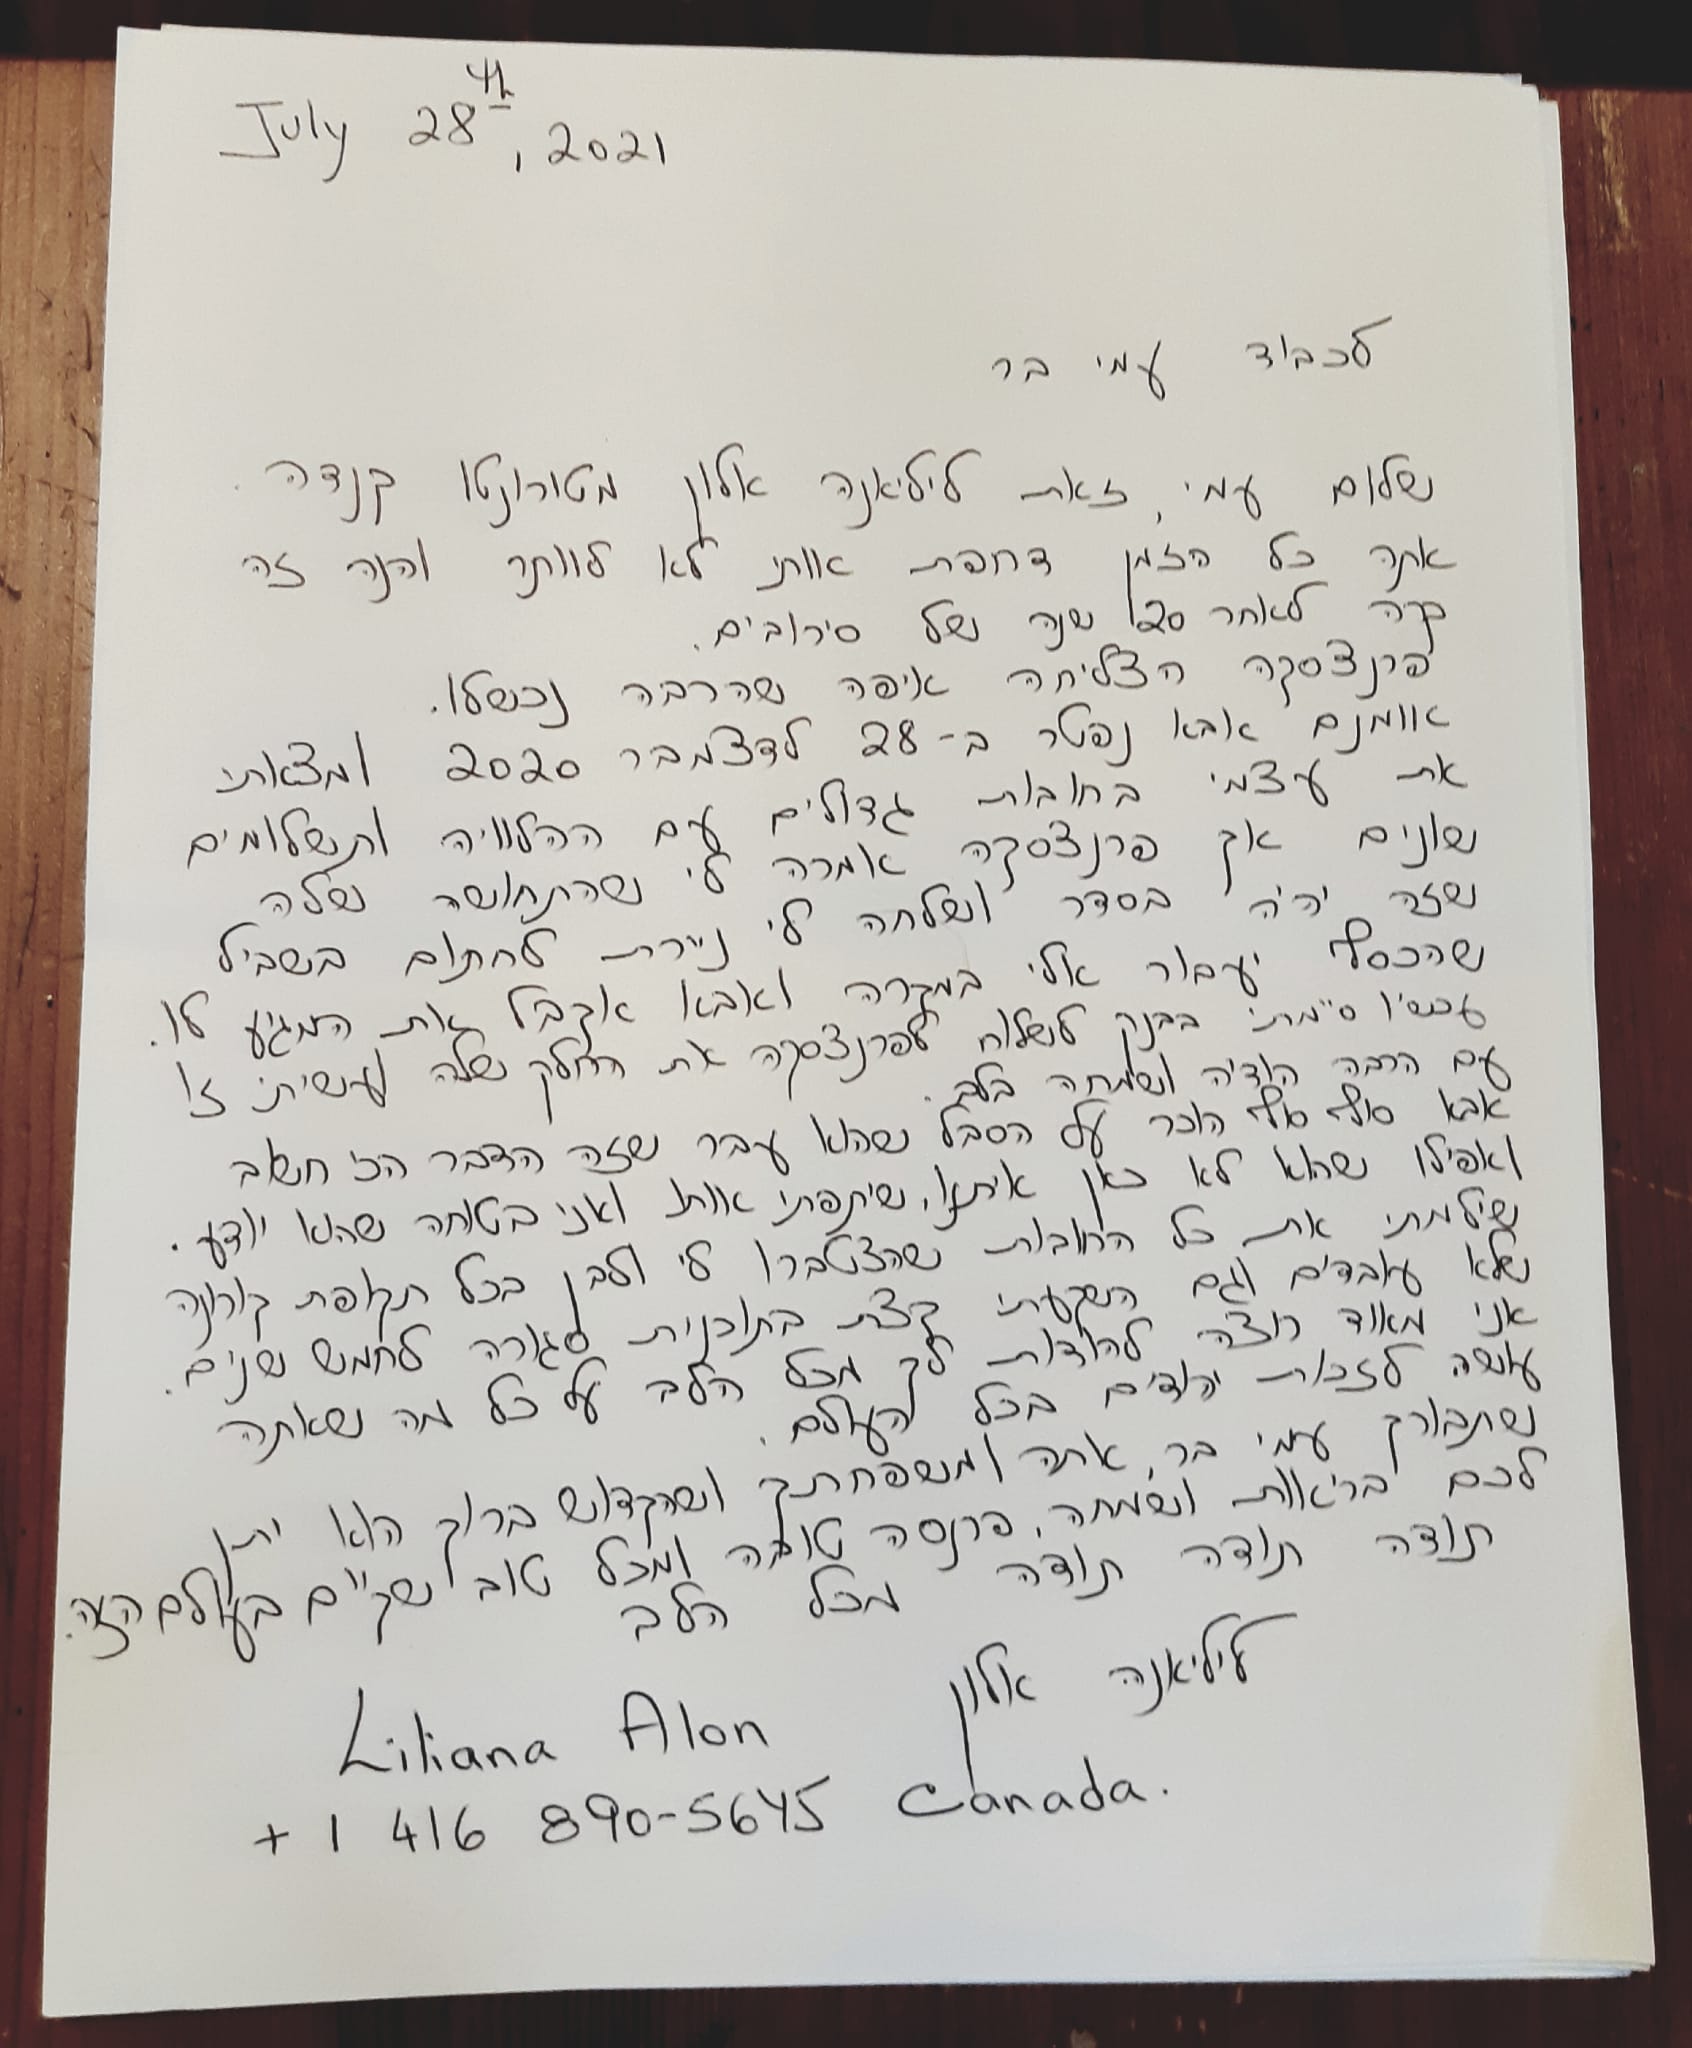 July 28th, 2021
לכבוד עמי בר
שלום עמי, זאת ליליאנה אלון מטורונטו קנדה.
אתה כל הזמן דחפת אותי לא לוותר והנה זה
קרה לאחר 20 שנה של סירובים.
פרנצסקה הצליחה איפה שהרבה נכשלו.
אומנם אבא נפטר ב-28 לדצמבר 2020 ומצאתי
את עצמי בחובות גדולים עם ההלוויה ותשלומים
שונים אך פרנצסקה אמרה לי שהתחושה שלה
שזה יהיה בסדר ושלחה לי ניירת לחתום בשביל
שהכסף יעבור אלי במקרה ואבא יקבל את המגיע לו.
עכשיו סיימתי בבנק לשלוח לפרנצסקה את החלק שלה ועשיתי זו
עם הרבה הודיה ושמחה בלב.
אבא סוף סוף הוכר על הסבל שהוא עבר שזה הדבר הכי חשוב
ואפילו שהוא לא כאן איתנו, שיתפתי אותו ואני בטוחה שהוא יודע.
שילמתי את כל החובות שהצטברו לי ולבן בכל תקופת קורונה
שלא עובדים וגם השקעתי קצת בתוכנית סגורה לחמש שנים.
אני מאוד רוצה להודות לך מכל הלב על כל מה שאתה
עושה לזכות יהודים בכל העולם.
שתבורך עמי בר, אתה ומשפחתך ושהקדוש ברוך הוא יתן
לכם בריאות ושמחה, פרנסה טובה ומכל טוב שקיים בעולם הזה.
תודה תודה תודה מכל הלב
ליליאנה אלון
Liliana Alon
+1 416 890-5645 Canada.